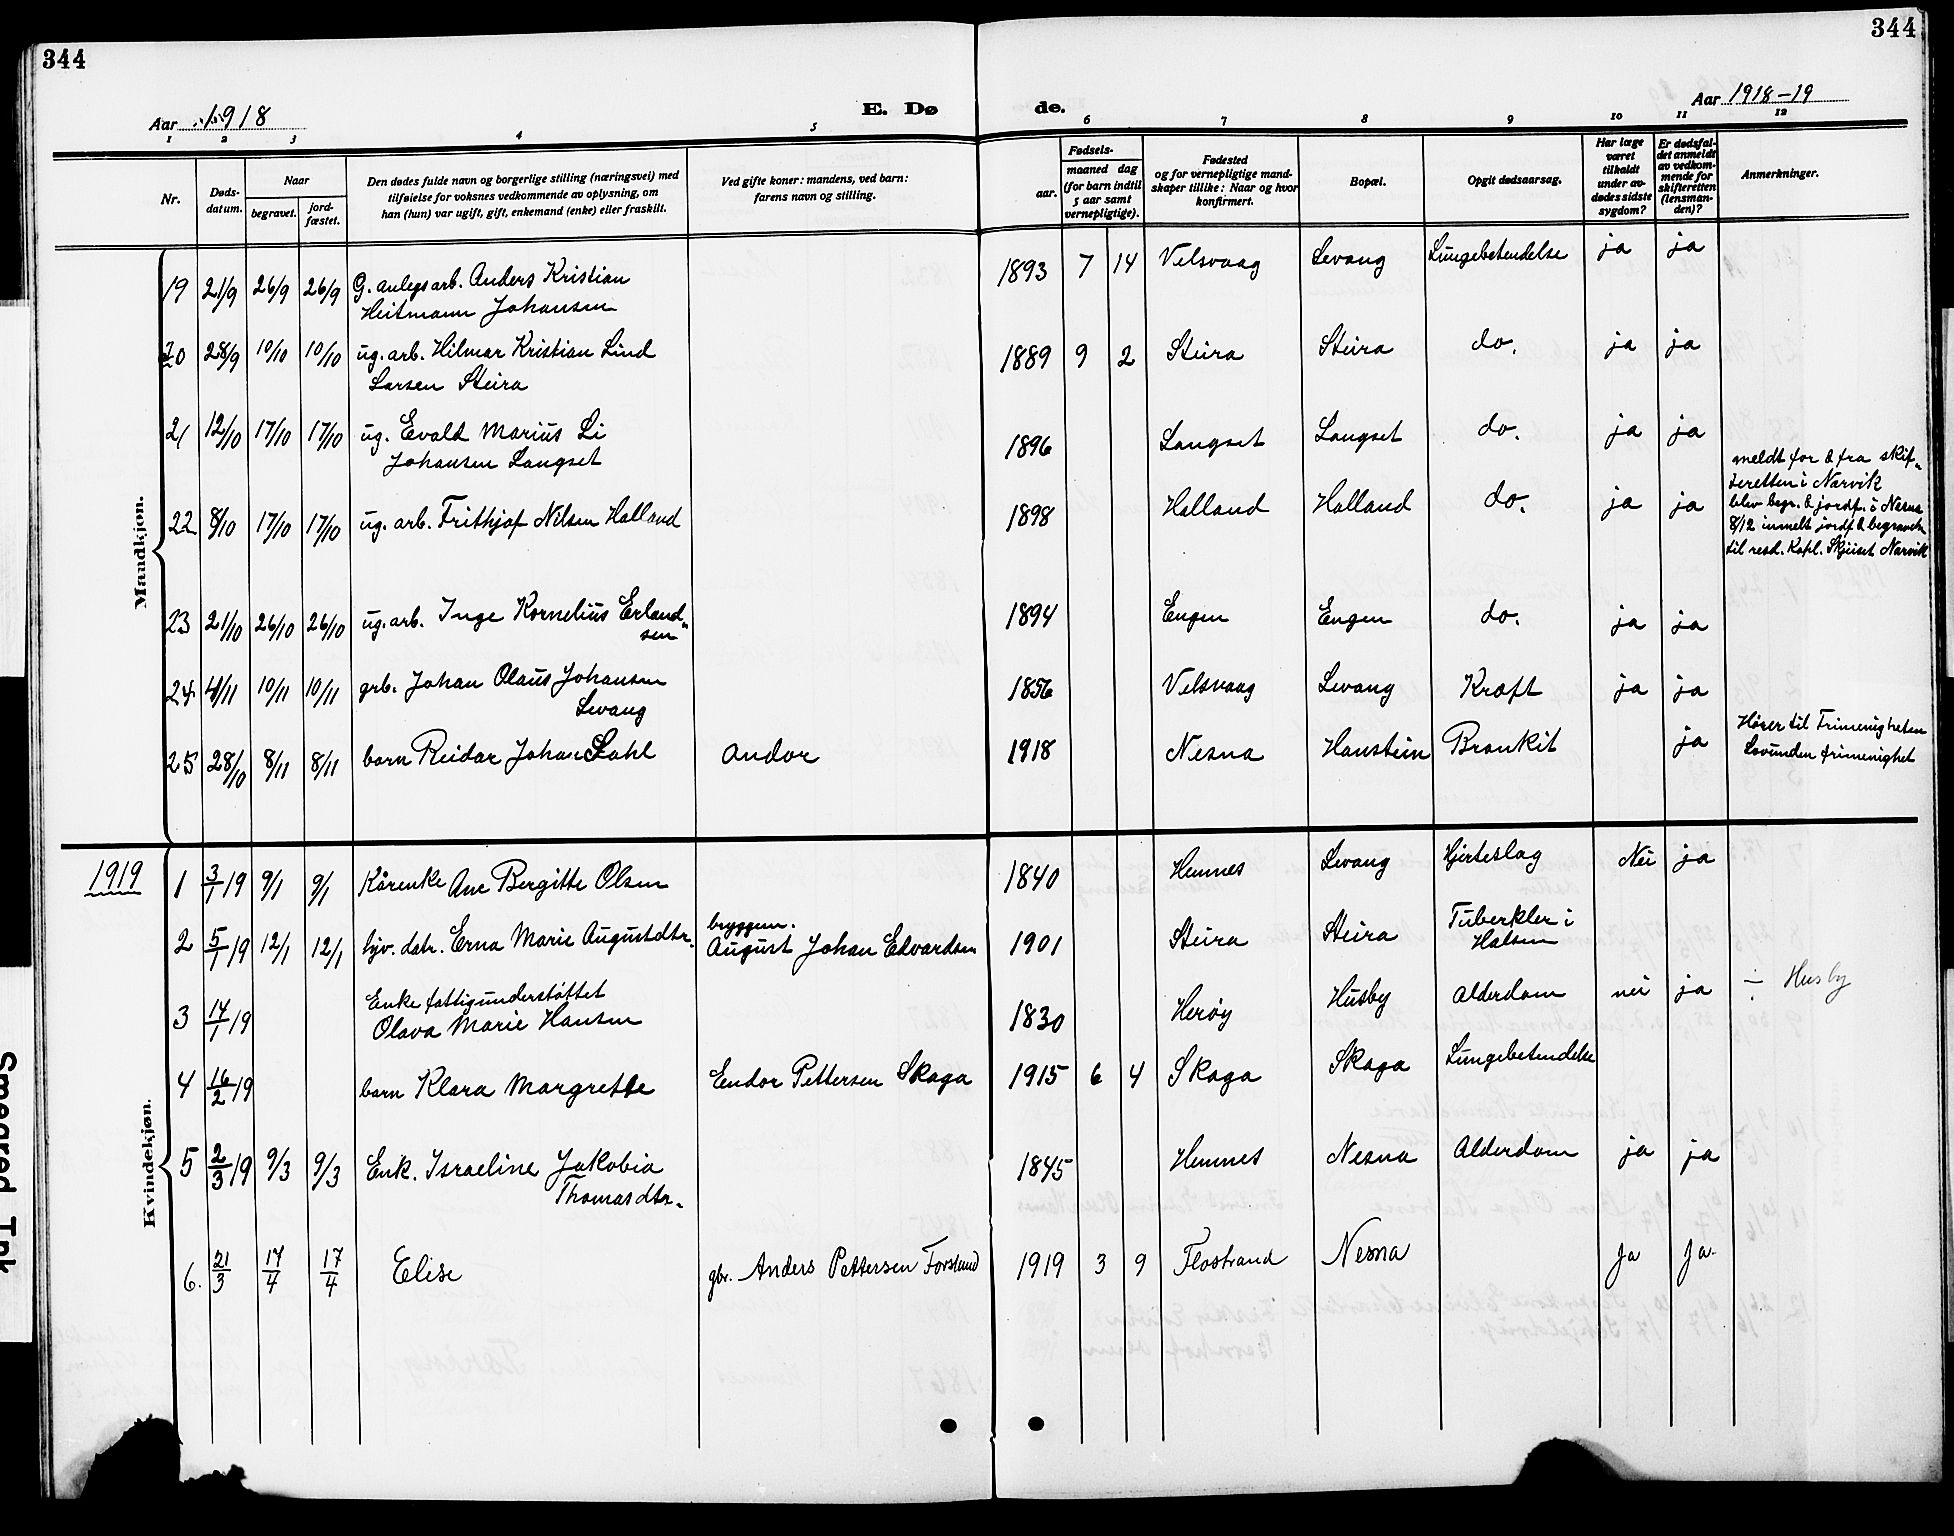 344
344
Aar 1918
E. Dø
de.
Aar 1918-19
1 2 3 4 5 6 7 8 9 10 11 12
Nr.
Døds-
datum.
Naar
begravet.
jord-
fæstet.
Den dødes fulde navn og borgerlige stilling (næringsvei) med
tilføielse for voksnes vedkommende av oplysning, om
han (hun) var ugift, gift, enkemand (enke) eller fraskilt.
Ved gifte koner: mandens, ved barn:
farens navn og stilling.
Fødsels-
aar.
maaned dag
(for barn indtil
5 aar samt
vernepligtige).
Fødested
og for vernepligtige mand-
skaper tillike: Naar og hvor
konfirmert.
Bopæl.
Opgit dødsaarsag.
Har læge
været
tilkaldt
under av-
dødes sidste
sygdom?
Er dødsfal-
det anmeldt
av vedkom-
mende for
skifteretten
(lensman-
den)?
Anmerkninger.
Maadkjøn.
19 21/9 26/9 26/9 G. anlegsarb. Anders Kristian 1893 7 14 Velsvaag Levang Lungebetendelse ja ja
Heitmann Johansen
20 28/9 10/10 10/10 ug. arb. Hilmar Kristian Lind 1889 9 2 Steira Steira do. ja ja
Larsen Steira
21 12/10 17/10 17/10 ug. Evald Marius Li 1896 Langset Langset do. ja ja
Johansen Langset
22 8/10 17/10 17/10 ug. arb. Frithjof Nilsen Halland 1898 Halland Halland do. ja ja
meldt for & fra skif-
teretten i Narvik
blev begr. & jordf. i Nesna
8/12 inmelt jordf & begravels
til resd. Kapl. Narvik
23 21/10 26/10 26/10 ug. arb. Inge Kornelius Erland- 1894 Engen Engen do. ja ja
sen
24 4/11 10/11 10/11 grb. Johan Olaus Johansen 1856 Velsvaag Levang Kræft ja ja
Levang
25 28/10 8/11 8/11 barn Reidar Johan Dahl Andor 1918 Nesna Haustein Bronkit ja
Hører til Frimenigheten
Lovunden frimenighet
1919
Kvindekjøn.
1 3/1 19 9/1 9/1 Kårenke Ane Bergitte Olsen 1840 Hemnes Levang Hjerteslag Nei ja
2 5/1 19 12/1 12/1 hjv. datr. Erna Marie Augustdtr. bryggem. August Johan Edvardsen 1901 Steira Steira Tuberkler i
Halsen
3 14/1 19 Enke fattigunderstøttet
Olava Marie Hansen 1830 Herøy Husby Alderdom nei ja ÷ Husby
4 16/2 19 barn Klara Margrethe Endor Pettersen Skaga 1915 6 4 Skaga Skaga Lungebetendelse
5 2/3 19 9/3 9/3 Enk. Israeline Jakobia 1845 Hemnes Nesna Alderdom ja ja
Thomasdtr.
6. 21/3 17/4 17/4 Elise gbr. Anders Pettersen Forslund 1919 3 9 Flostrand Nesna Ja Ja.